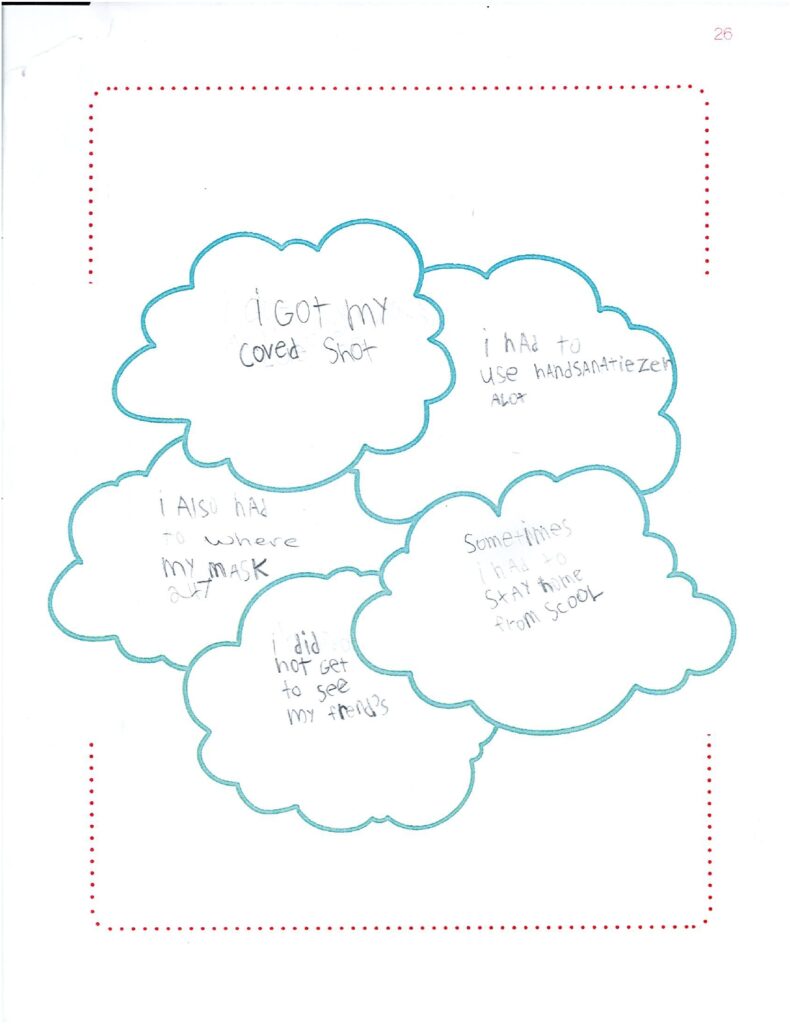 26
i GOT MY
COVED SHOT
i hAd to
use hANdSANAtiezer
ALOt
i Also hAd
to where
MY MASK
247
Sometimes
i hAd to
StAY home
from SCOOL
i did
not Get
to see
MY frend's